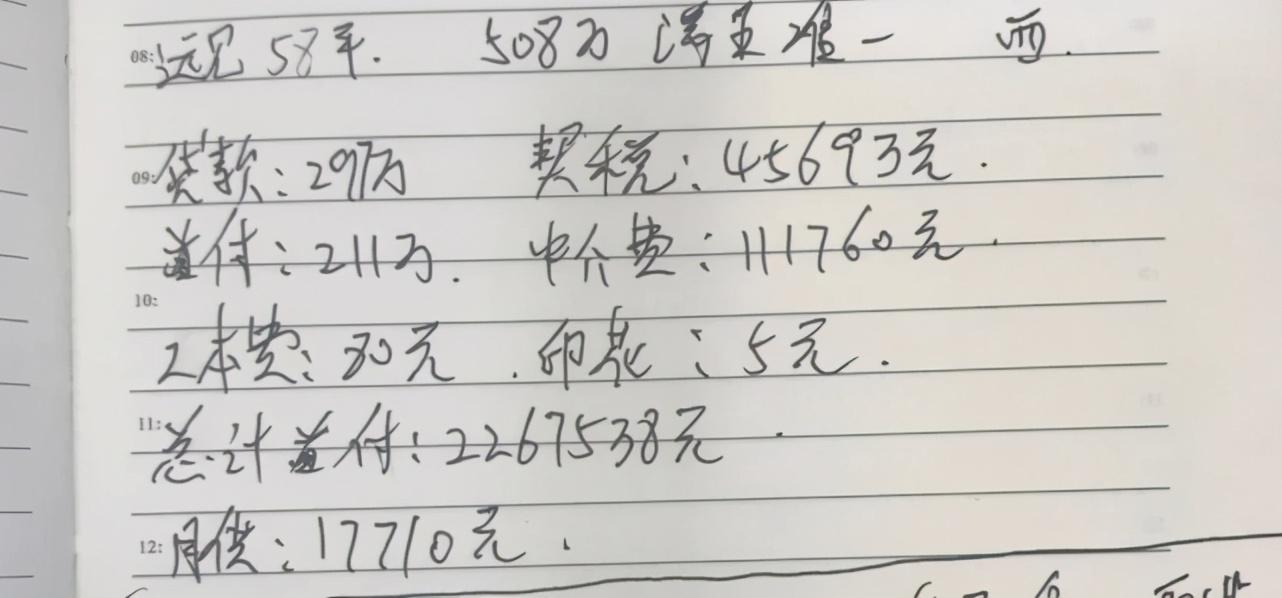 08: 远见 58平. 508万 满五唯一 西.
09: 贷款: 297万 契税: 45693元.
首付: 211万. 中介费: 111760元.
10:
工本费: 80元. 印花: 5元.
11: 总计首付: 2267538元.
12: 月供: 17710元.